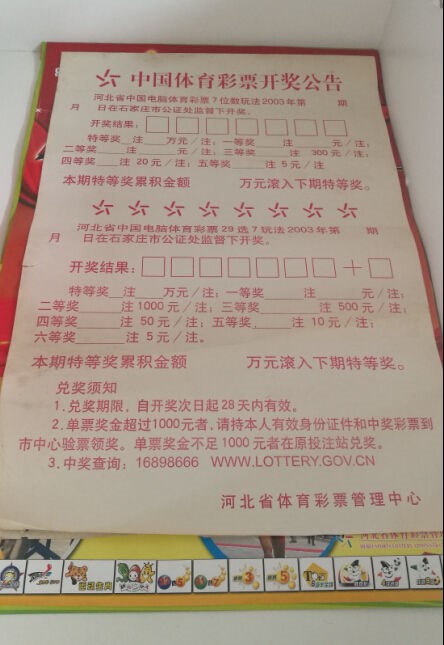 中国体育彩票开奖公告
河北省中国电脑体育彩票7位数玩法2003年第 期
月 日在石家庄市公证处监督下开奖。
开奖结果：□□□□□□□
特等奖__注____万元/注；一等奖____注____元/注；
二等奖____注____元/注；三等奖____注 300元/注；
四等奖____注 20元/注；五等奖____注 5元/注
本期特等奖累积金额 万元滚入下期特等奖。
河北省中国电脑体育彩票29选7玩法2003年第 期
月 日在石家庄市公证处监督下开奖。
开奖结果：□□□□□□□＋□
特等奖__注____万元/注；一等奖____注____元/注；
二等奖____注1000元/注；三等奖____注 500元/注；
四等奖____注 50元/注；五等奖____注 10元/注；
六等奖____注 5元/注。
本期特等奖累积金额 万元滚入下期特等奖。
兑奖须知
1.兑奖期限，自开奖次日起28天内有效。
2.单票奖金超过1000元者，请持本人有效身份证件和中奖彩票到
市中心验票领奖。单票奖金不足1000元者在原投注站兑奖。
3.中奖查询：16898666 WWW.LOTTERY.GOV.CN
河北省体育彩票管理中心
河北省体育彩票